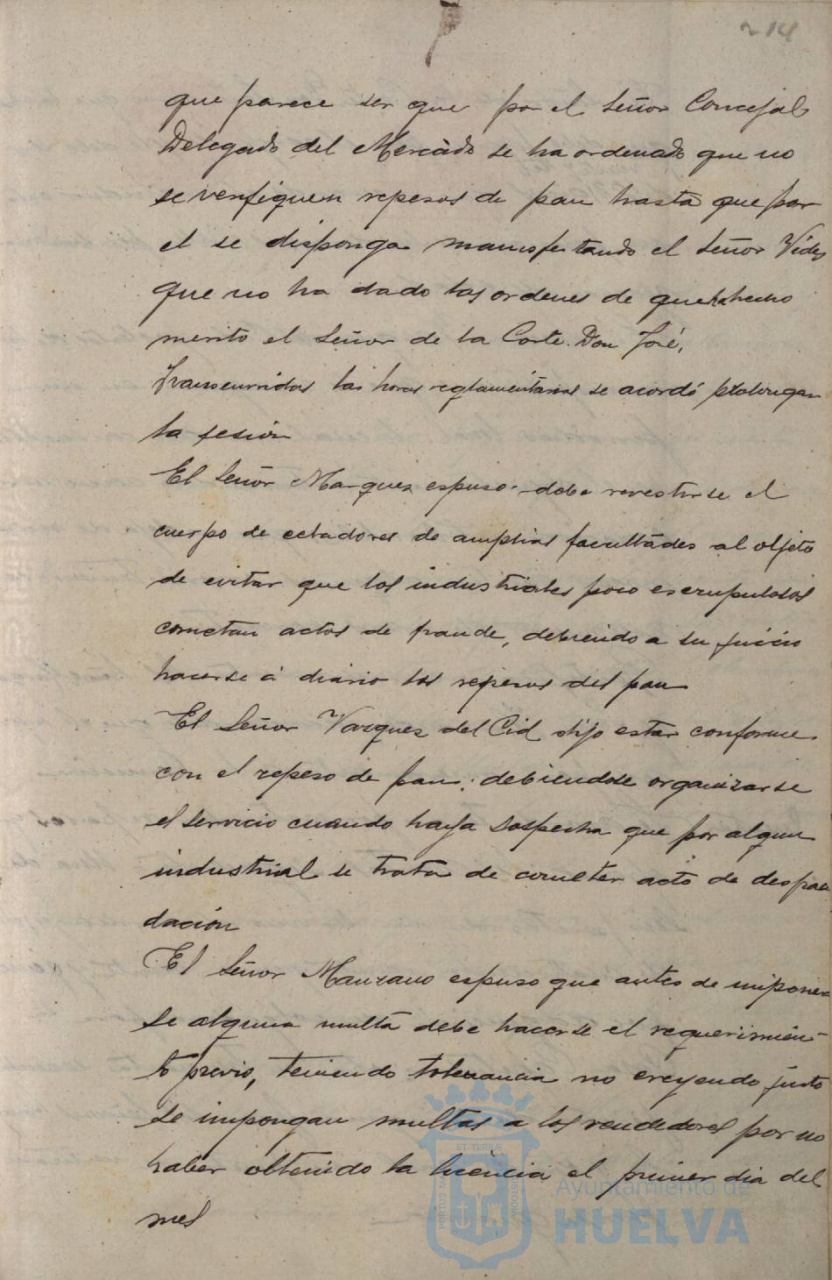 214
que parece ser que por el Señor Concejal
Delegado del Mercado se ha ordenado que no
se verifiquen repesos de pan hasta que por
el se disponga manifestando el Señor Vides
que no ha dado las ordenes de que ha hecho
merito el Señor de la Corte. Don José.
Transcurridas las horas reglamentarias se acordó prolongar
la sesión
El Señor Marquez espuso debe revestirse el
cuerpo de celadores de amplias facultades al objeto
de evitar que los industriales poco escrupulosos
cometan actos de fraude, debiendo a su juicio
hacerse á diario los repesos del pan
El Señor Vazquez del Cid dijo estar conforme
con el repeso de pan; debiendose organizarse
el servicio cuando haya sospecha que por algun
industrial se trata de cometer acto de desfrau
dación
El Señor Manzano espuso que antes de imponer
se alguna multa debe hacerse el requerimien-
to previo, teniendo tolerancia no creyendo justo
se impongan multas a los vendedores por no
haber obtenido la licencia el primer dia del
mes
Ayuntamiento de
HUELVA